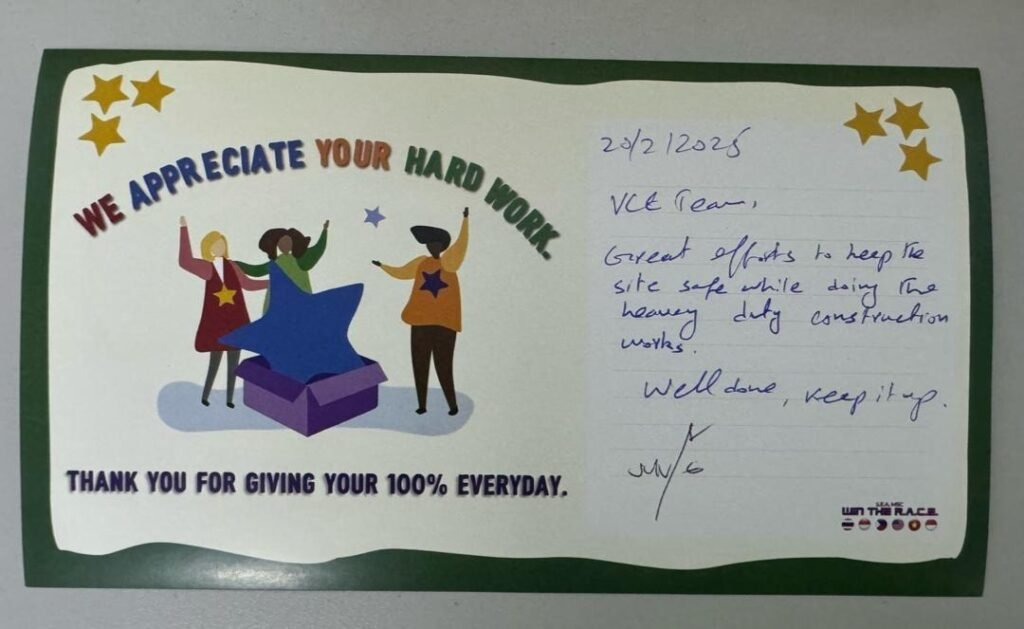 WE APPRECIATE YOUR HARD WORK.
THANK YOU FOR GIVING YOUR 100% EVERYDAY.
20/2/2025
VCE Team,
Great efforts to keep the
site safe while doing the
heavey duty construction
works.
Well done, keep it up.
WIN THE R.A.C.E.